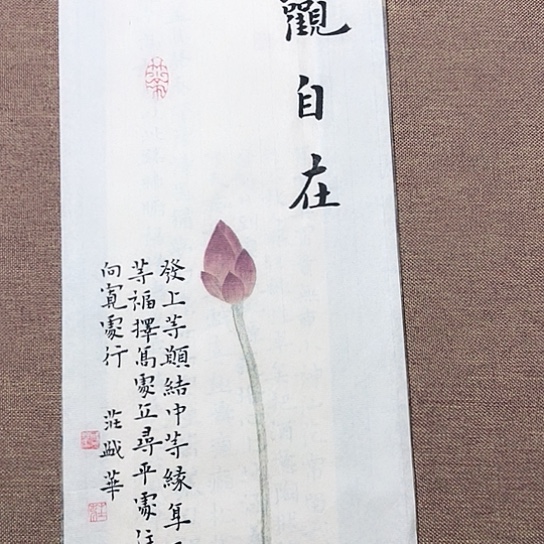 觀自在
發上等願結中等緣享
等福擇高處立尋平處住
向寬處行
莊戩華